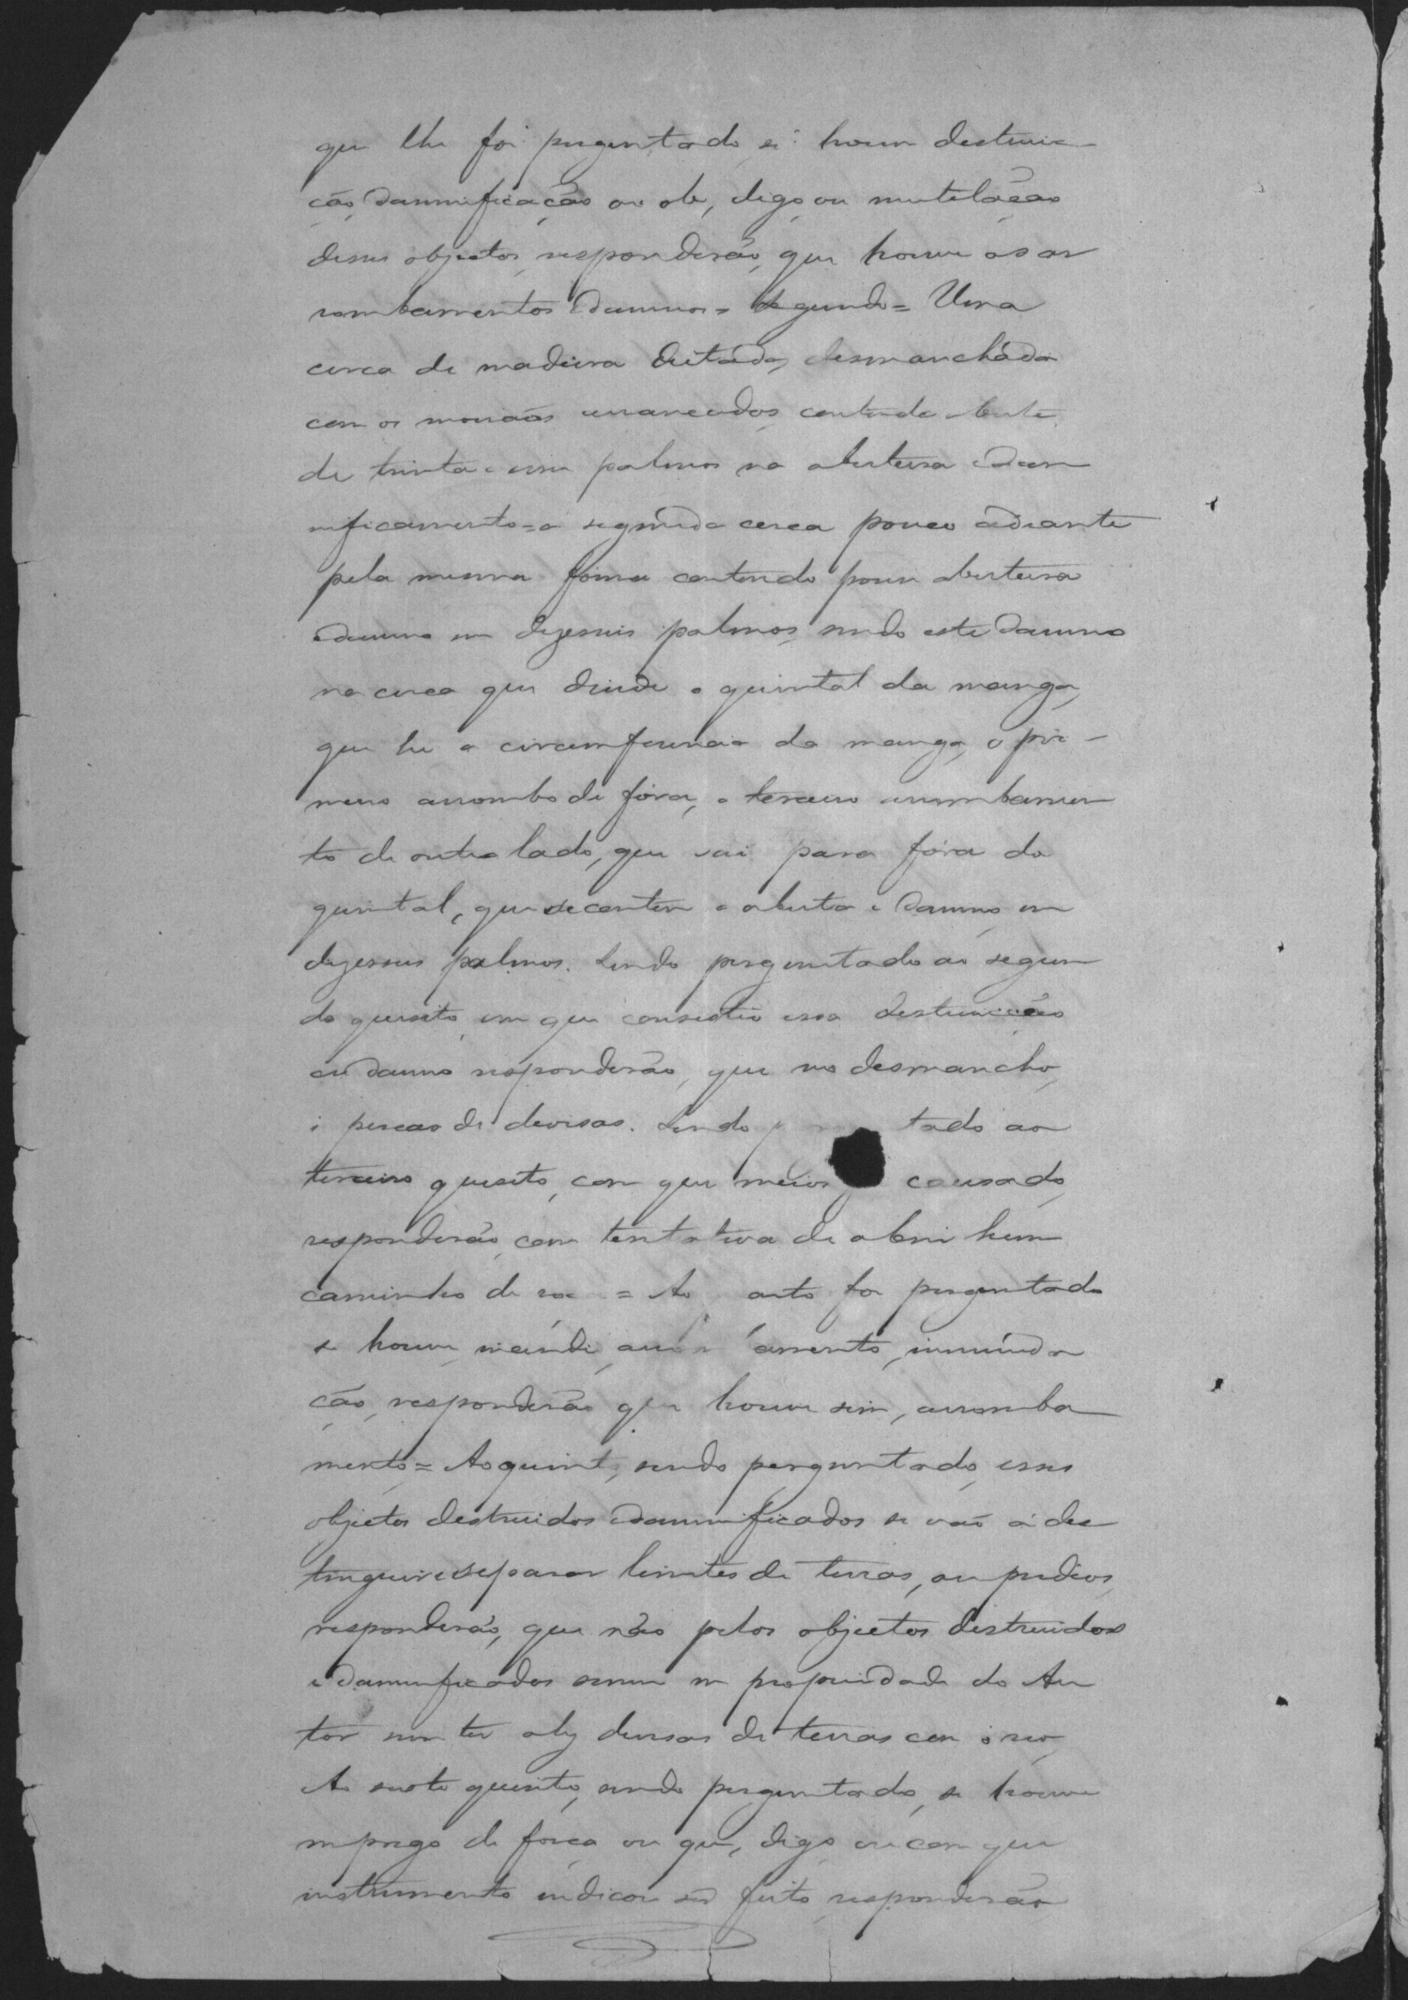 que lhe foi preguntado si houve destrui-
ção, damnificação ou ob, digo ou mutelação
desses objectos, responderão, que houve os ar
rombamentos e damnos = segundo = Uma
cerca de madeira deitada, desmanchada
com os mourãos arrancados, contendo
de trinta e um palmos na abertura e dam
nificamento = a segunda cerca pouco adiante
pela mesma forma contendo porem abertura
e damno em dezesseis palmos, sendo este damno
na cerca que divide o quintal da manga,
que he a circumferencia da manga, o pri-
meiro arrombo de fóra, o terceiro arrombamen
to de outro lado, que sai para fóra do
quintal, que se contem a aberta e damno, em
dezesseis palmos. Sendo preguntado ao segun
do quesito, em que consistio essa destruicção
ou damno responderão, que no desmancho,
de devisas. Sendo tado ao
terceiro quesito, com que meios causado,
responderão, com tentativa de abrir hum
caminho de = Ao arto foi preguntado
se houve, incendio, amento, innunda
ção, responderão que houve sim, arromba
mento = Ao quinto, sendo perguntado, esses
objectos destruidos e damnificados se vão á des
tinguir e separar limites de terras, ou predios,
responderão, que não pelos objectos distruidos
e damnificados serem em propriedade do Au
tor sem ter devisas de terras com o reo,
Ao sexto quesito, sendo preguntado, se houve
emprego de força ou que, digo ou com que
instrumento indicou ser feito, responderão